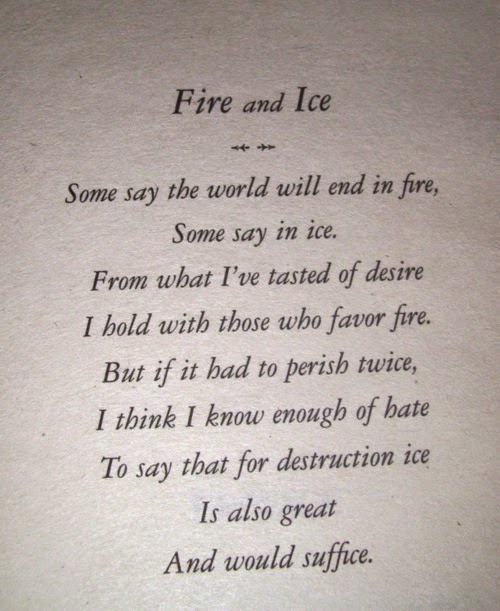 Fire and Ice
Some say the world will end in fire,
Some say in ice.
From what I've tasted of desire
I hold with those who favor fire.
But if it had to perish twice,
I think I know enough of hate
To say that for destruction ice
Is also great
And would suffice.